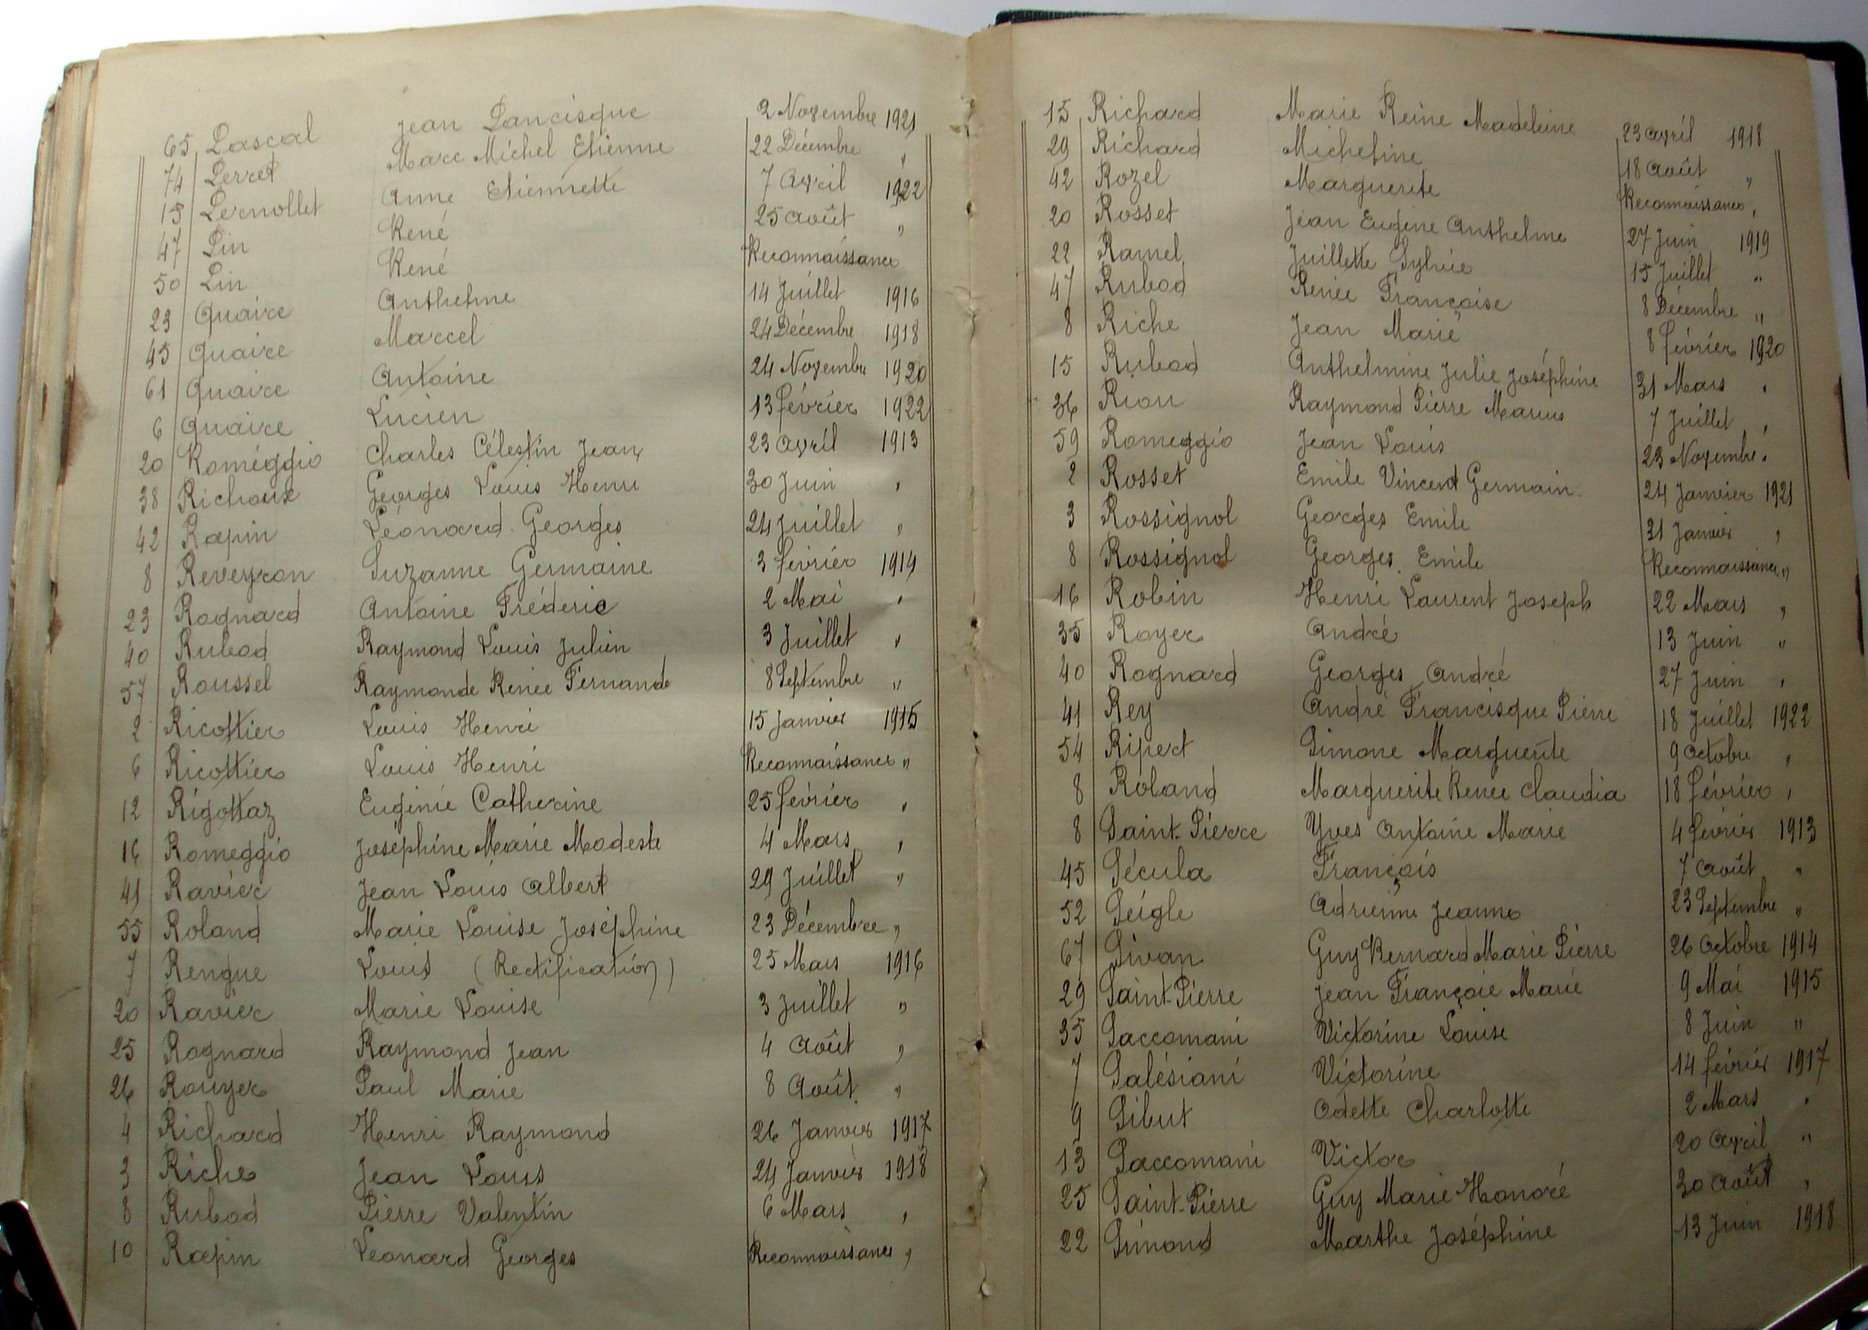 65 Pascal Jean Pancisque 2 Novembre 1921
74 Perret Marc Michel Etienne 22 Décembre "
15 Pernollet Anne Etiennette 7 Avril 1922
47 Pin René 25 Août "
50 Pin René Reconnaissance
23 Quaire Anthelme 14 Juillet 1916
45 Quaire Marcel 24 Décembre 1918
61 Quaire Antoine 24 Novembre 1920
6 Quaire Lucien 13 février 1922
20 Roméggio Charles Célestin Jean 23 avril 1913
38 Richoux Georges Louis Henri 30 Juin "
42 Rapin Léonard Georges 24 Juillet "
8 Reveyron Suzanne Germaine 3 février 1914
23 Rognard Antoine Fréderic 2 Mai "
40 Rubod Raymond Louis Julien 3 Juillet "
57 Roussel Raymonde Renée Fernande 8 Septembre "
2 Ricottier Louis Henri 15 Janvier 1915
6 Ricottier Louis Henri Reconnaissance "
12 Rigottaz Eugénie Catherine 25 février "
16 Romeggio Joséphine Marie Modeste 4 Mars "
41 Ravier Jean Louis Albert 29 Juillet "
55 Roland Marie Louise Joséphine 23 Décembre "
7 Rengue Louis (Rectification) 25 Mars 1916
20 Ravier Marie Louise 3 Juillet "
25 Rognard Raymond Jean 4 Août "
26 Rouyer Paul Marie 8 Août "
4 Richard Henri Raymond 26 Janvier 1917
3 Riche Jean Louis 24 Janvier 1918
8 Rubod Pierre Valentin 6 Mars "
10 Rapin Leonard Georges Reconnaissance "
15 Richard Marie Reine Madeleine 23 avril 1918
29 Richard Micheline 18 Août "
42 Rozel Marguerite Reconnaissance "
20 Rosset Jean Eugène Anthelme 27 Juin 1919
22 Ramel Juillette Sylvie 15 Juillet "
47 Rubod Renée Françoise 8 Décembre "
8 Riche Jean Marie 8 février 1920
15 Rubod Anthelmine Julie Joséphine 31 Mars "
36 Rion Raymond Pierre Marius 7 Juillet "
59 Romeggio Jean Louis 23 Novembre "
2 Rosset Emile Vincent Germain 24 Janvier 1921
3 Rossignol Georges Emile 31 Janvier "
8 Rossignol Georges Emile Reconnaissance "
16 Robin Henri Laurent Joseph 22 Mars "
35 Royer André 13 Juin "
40 Rognard Georges André 27 Juin "
41 Rey André Francisque Pierre 18 Juillet 1922
54 Ripert Simone Marguerite 9 Octobre "
8 Roland Marguerite Renée Claudia 18 février "
8 Saint-Pierre Yves Antoine Marie 4 février 1913
45 Sécula François 7 Août "
52 Seigle Adrienne Jeanne 23 Septembre "
67 Sivan Guy Bernard Marie Pierre 26 Octobre 1914
29 Saint-Pierre Jean Françoie Marie 9 Mai 1915
35 Saccomani Victorine Louise 8 Juin "
7 Salésiani Victorine 14 février 1917
9 Sibut Odette Charlotte 2 Mars "
13 Saccomani Victor 20 Avril "
25 Saint-Pierre Guy Marie Honoré 30 Août "
22 Simond Marthe Joséphine 13 Juin 1918